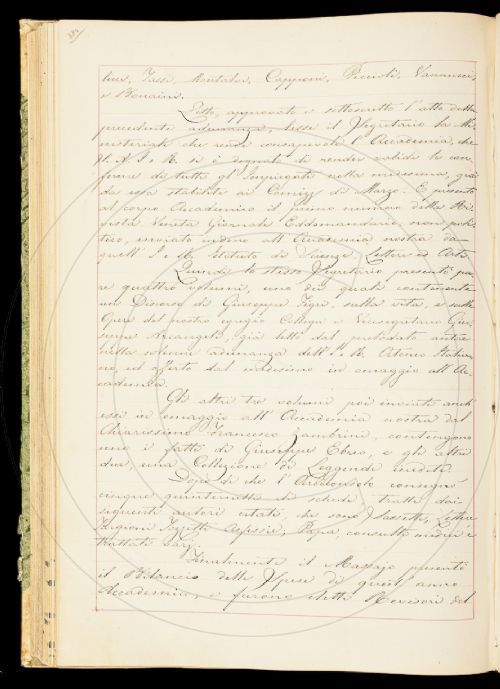 tini, Tassi, Montalvi, Capponi, Piccioli, Vannucci,
e Bonaini.
Letto, approvato e sottoscritto l'atto della
precedente adunanza, lesse il Segretario la Mi-
nisteriale che rende consapevole l'Accademia, che
S. A. I. e R. si è degnata di render valide le con-
ferme di tutti gl'Impiegati nella medesima, già
da essa stabilite ai Comizj di Marzo. E presentò
al corpo Accademico il primo numero della Ri-
vista Veneta Giornale Eddomandario non poli-
tico, inviato in dono all'Accademia nostra da
quell'I. e R. Istituto di Scienze Lettere ed Arti.
Quindi lo stesso Segretario presentò pu-
re quattro volumi, uno dei quali contenente
un Discorso di Giuseppe Tigri, sulla vita, e sulle
Opere del nostro egregio Collega e Vicesegretario Giu-
seppe Arcangeli, già letto dal prelodato autore
nella solenne adunanza dell'I. e R. Ateneo Italia-
no, ed offerto dal medesimo in omaggio all'Ac-
cademia.
Gli altri tre volumi poi inviati anch'
essi in omaggio all'Accademia nostra dal
Chiarissimo Francesco Zambrini, contengono
uno i fatti di Giuseppe Ebreo, e gli altri
due, una Collezione di Leggende inedite.
Dopo di che l'Arciconsolo consegnò
cinque quinternetti di schede, tratte dai
seguenti autori citati, che sono Sassetti, Lettere
Targioni Tozzetti Papa, consulto medico e
trattati varj.
Finalmente il Massajo presentò
il Bilancio delle Spese di quest'anno
Accademico, e furono eletti Revisori del